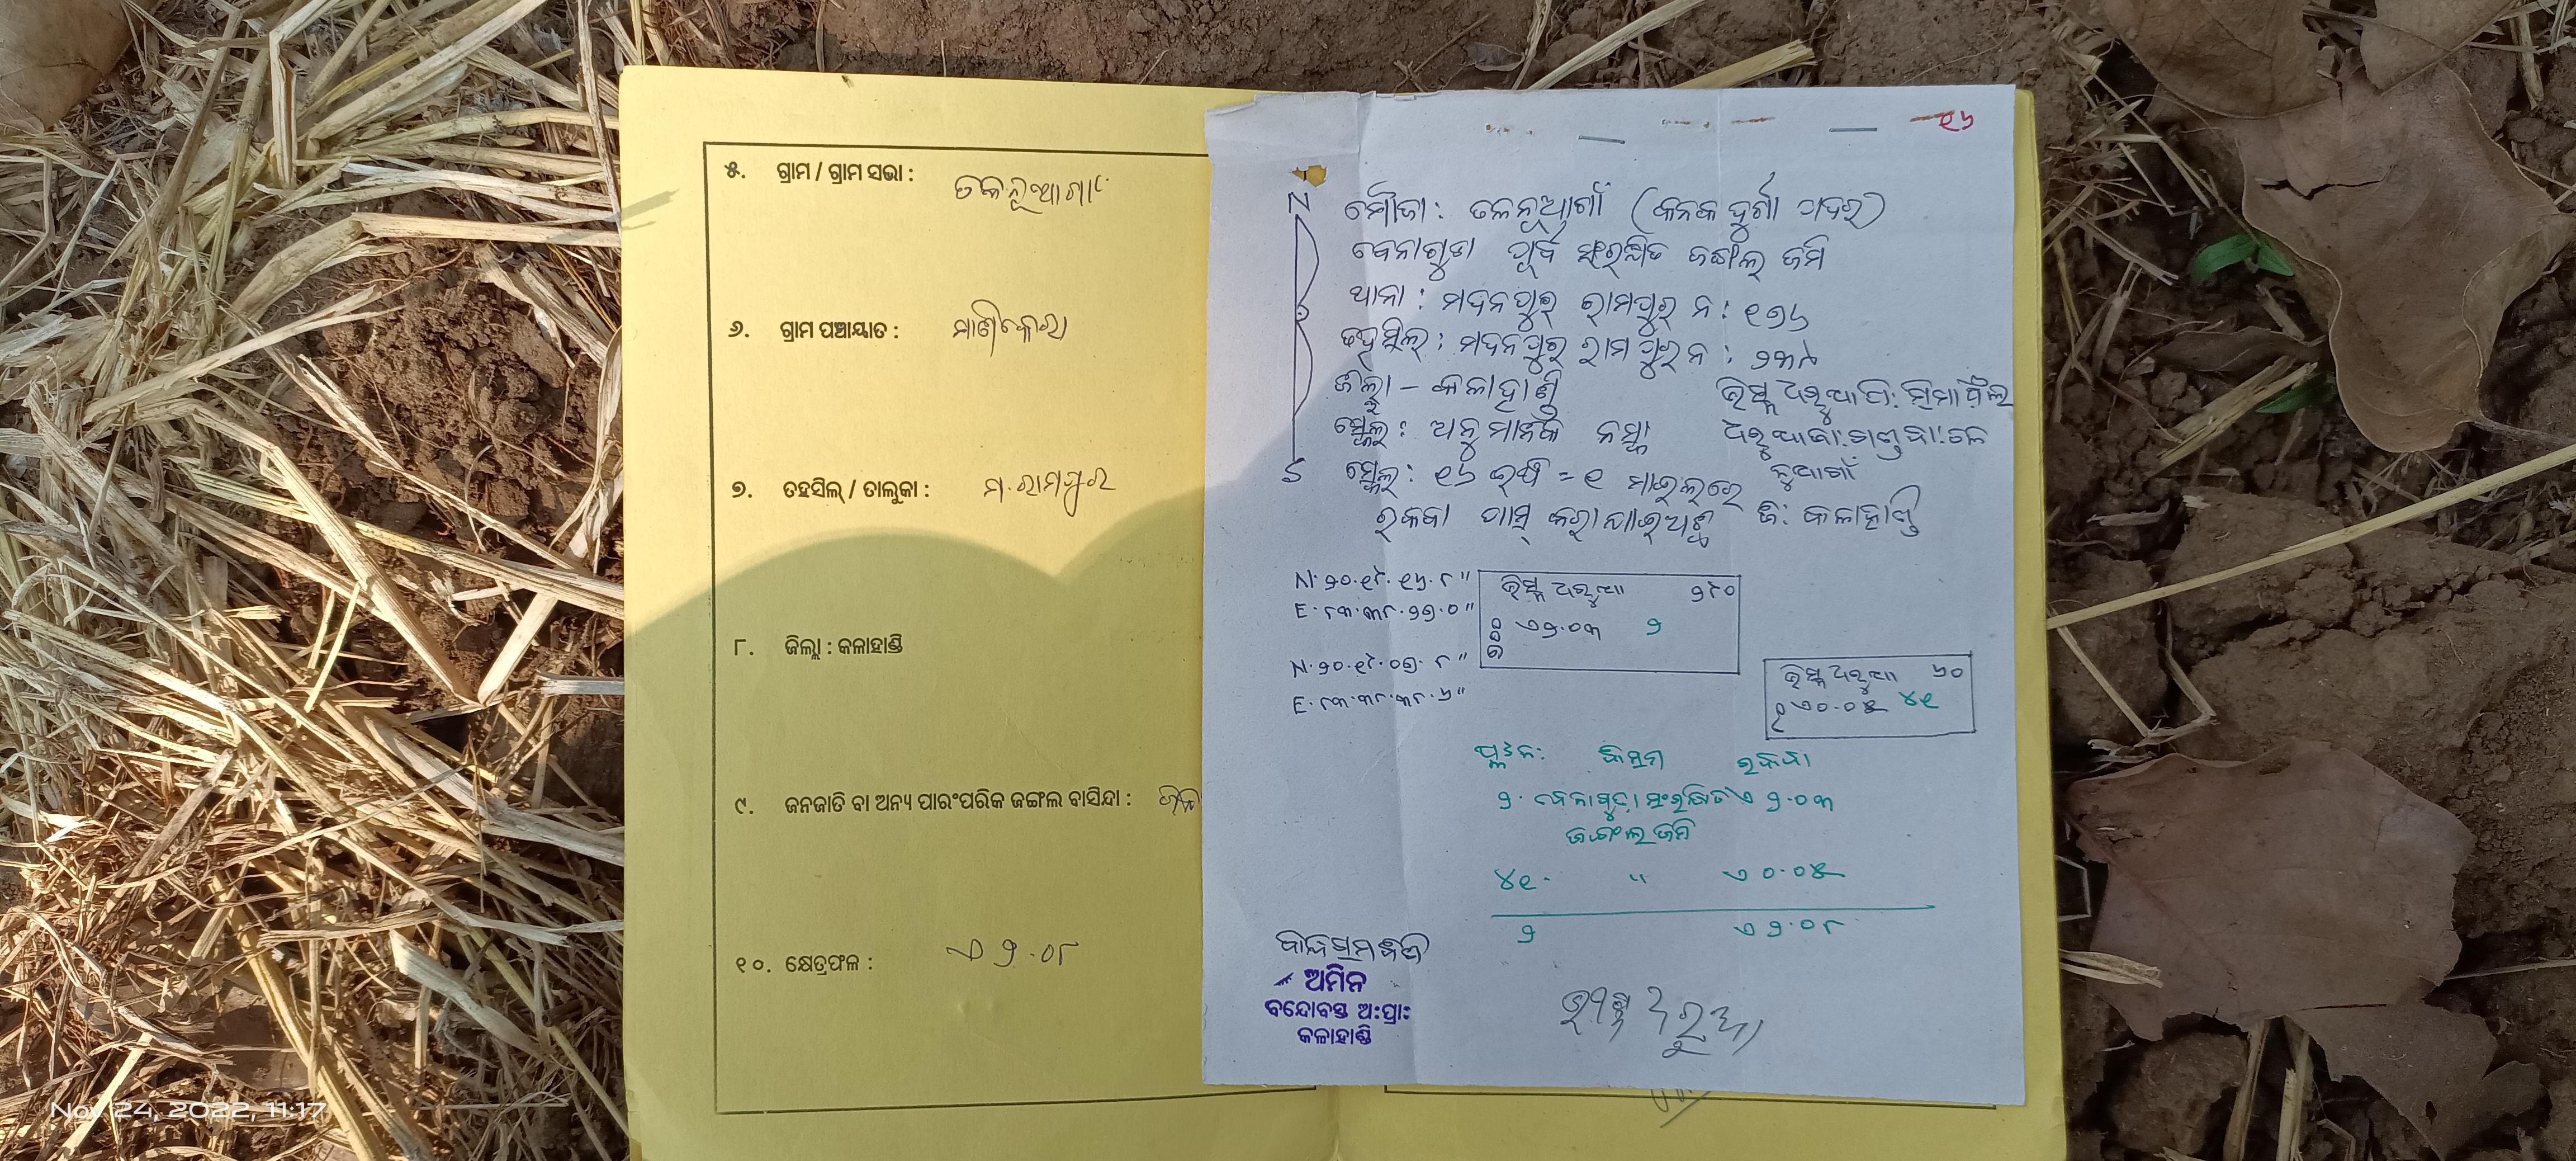 ୫. ଗ୍ରାମ / ଗ୍ରାମ ସଭା : ତଳନୂଆଗାଁ
୬. ଗ୍ରାମ ପଞ୍ଚାୟାତ : ମାଣିକେରା
୭. ତହସିଲ୍ / ତାଲୁକା : ମ.ରାମପୁର
୮. ଜିଲ୍ଲା : କଳାହାଣ୍ଡି
୯. ଜନଜାତି ବା ଅନ୍ୟ ପାରଂପରିକ ଜଙ୍ଗଲ ବାସିନ୍ଦା :
୧୦. କ୍ଷେତ୍ରଫଳ : ଏ ୨.୦୮
୧୬
N
ମୌଜା : ତଳନୂଆଗାଁ (କନକ ଦୁର୍ଗା ପଦର)
ବେନାଗୁଡା ପୂର୍ବ ସଂରକ୍ଷିତ ଜଙ୍ଗଲ ଜମି
ଥାନା : ମଦନପୁର୍ ରାମପୁର୍ ନଂ : ୧୭୬
ତହସିଲ୍ : ମଦନପୁର୍ ରାମପୁର ନଂ :
ଜିଲ୍ଲା - କଳାହାଣ୍ଡି
ସ୍କେଲ୍ : ଅନୁମାନିକ ନକ୍ସା
ସ୍କେଲ୍ : ୧୬ ଇଞ୍ଚ = ୧ ମାଇଲରେ
ରକବା ପାସ୍ କରାଯାଇଅଛି
S
ଭିସ୍ମ ଧରୁଆ ପି:
ଧରୁଆ ଜା: ଗଣ୍ଡ ସା: ତଳ
ନୁଆଗାଁ
ଜି: କଳାହାଣ୍ଡି
N. ୨୦.୧୮. ୧୬. ୮"
E. ୮୩.୩୮.୨୭.୦"
ଭିସ୍ମ ଧରୁଆ ୨୮୦
ଏ ୨.୦୩ ୨
N. ୨୦.୧୮.୦୭. ୮"
E. ୮୩.୩୮.୩୮.୬"
ଭିସ୍ମ ଧରୁଆ ୬୦
ଏ ୦.୦୫ ୪୧
ପ୍ଲଟ ନଂ: କିସମ ରକବା
୨. ବେନାଗୁଡା ସଂରକ୍ଷିତ ଏ ୨.୦୩
ଜଙ୍ଗଲ ଜମି
୪୧. " ଏ ୦.୦୫
୨ ଏ ୨.୦୮
ଅମିନ
ବନ୍ଦୋବସ୍ତ ଅଃପ୍ରାଃ
କଳାହାଣ୍ଡି
ଭୀଷ୍ମ ଧରୁଆ
Nov 24, 2022, 11:17